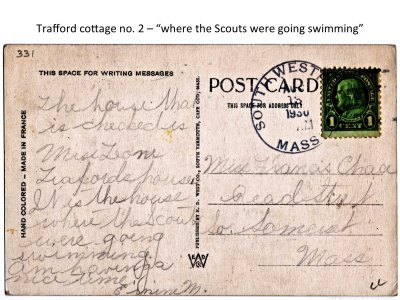 Trafford cottage no. 2 – “where the Scouts were going swimming”
331
THIS SPACE FOR WRITING MESSAGES
The house that
is checked is
Miss Leoni
Trafords house
It is the house
where the Scouts
were going
swimming.
Am having a
nice time.
M.
HAND COLORED — MADE IN FRANCE
PUBLISHED BY E. D. WEST CO., SOUTH YARMOUTH, CAPE COD, MASS.
POST CARD
THIS SPACE FOR ADDRESS ONLY
SOUTH WEST
1930
MASS
1 CENT 1
Miss Francis Chace
Read St.
So. Somerset
Mass